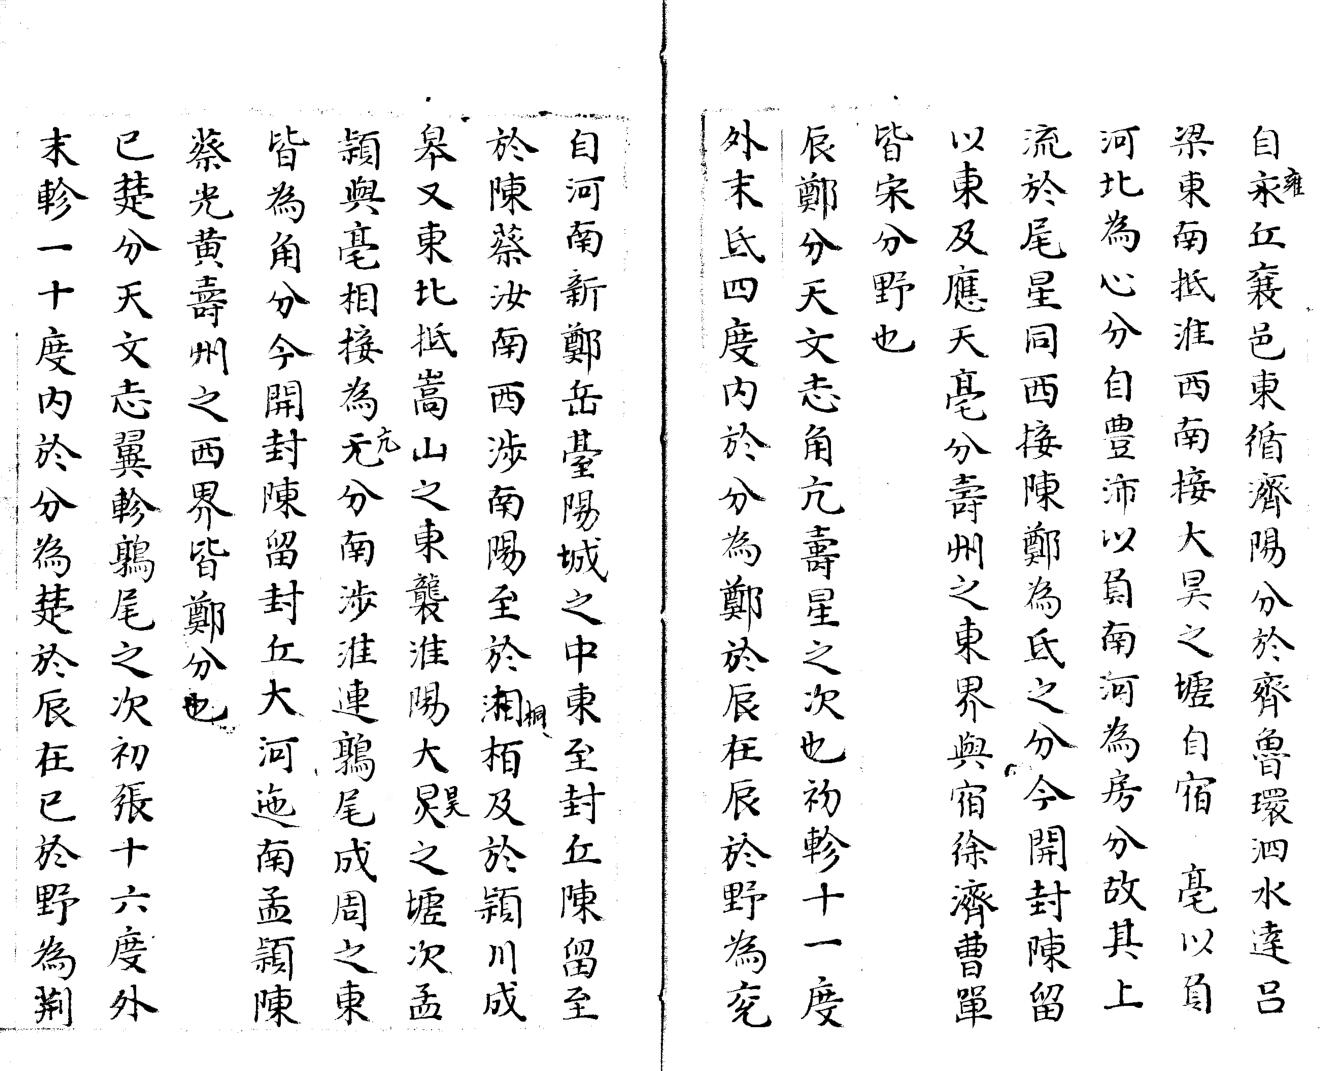 自永雍丘襄邑東循濟陽分於齊魯環泗水達呂
梁東南抵淮西南接大昊之墟自宿亳以負
河北為心分自豊沛以負南河為房分故其上
流於尾星同西接陳鄭為氐之分今開封陳留
以東及應天亳分壽州之東界與宿徐濟曹單
皆宋分野也
辰鄭分天文志角亢壽星之次也初軫十一度
外末氐四度内於分為鄭於辰在辰於野為兖
自河南新鄭岳臺陽城之中東至封丘陳留至
於陳蔡汝南西涉南陽至於湘桐栢及於潁川成
皋又東北抵嵩山之東襲淮陽大炅昊之墟次孟
潁與亳相接為无亢分南涉淮連鶉尾成周之東
皆為角分今開封陳留封丘大河迤南孟潁陳
蔡光黄壽州之西界皆鄭分也
巳楚分天文志翼軫鶉尾之次初張十六度外
末軫一十度内於分為楚於辰在巳於野為荆